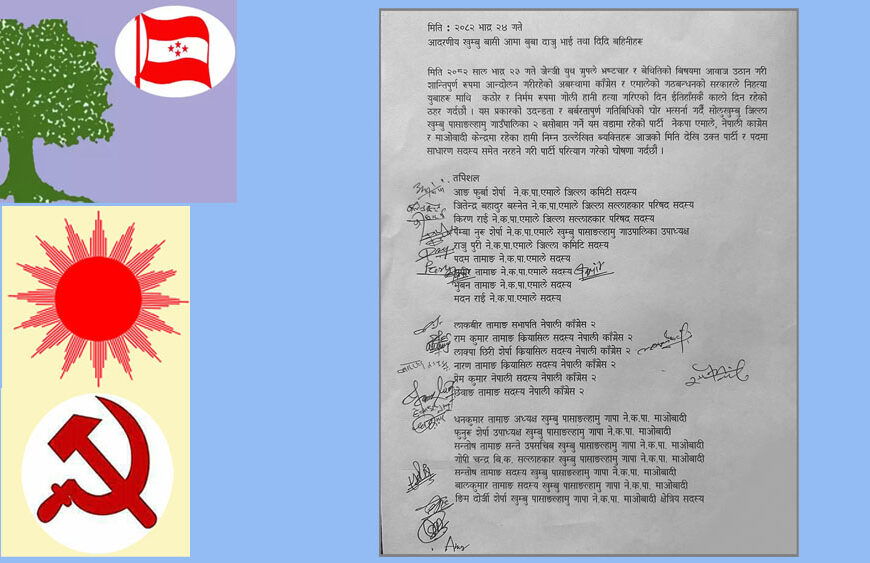 मिति : २०८२ भाद्र २४ गते
आदरणीय खुम्बु बासी आमा बुबा दाजु भाई तथा दिदि बहिनीहरू
मिति २०८२ साल भाद्र २३ गते जेन्जी युथ ग्रुपले भ्रष्टचार र बेथितिको बिषयमा आवाज उठान गरी
शान्तिपुर्ण रूपमा आन्दोलन गरीरहेको अबस्थामा काँग्रेस र एमालेको गठबन्धनको सरकारले निहत्या
युबाहरू माथि कठोर र निर्मम रूपमा गोली हानी हत्या गरिएको दिन ईतिहाँसकै कालो दिन रहेको
ठहर गर्दछौं । यस प्रकारको उदन्डता र बर्बरतापुर्ण गतिबिधिको घोर भर्त्सना गर्दै सोलुखुम्बु जिल्ला
खुम्बु पासाङल्हामु गाउँपालिका २ बसोबास गर्ने यस वडामा रहेको पार्टी नेकपा एमाले, नेपाली काग्रेस
र माओबादी केन्द्रमा रहेका हामी निम्न उल्लेखित ब्यक्तिहरू आजको मिति देखि उक्त पार्टी र पदमा
साधारण सदस्य समेत नरहने गरी पार्टी परित्याग गरेको घोषणा गर्दछौं ।
तपिशल
आङ फुर्बा शेर्पा ने.क.पा.एमाले जिल्ला कमिटी सदस्य
जितेन्द्र बहादुर बस्नेत ने.क.पा.एमाले जिल्ला सल्लाहकार परिषद सदस्य
किरण राई ने.क.पा.एमाले जिल्ला सल्लाहकार परिषद सदस्य
पेम्बा नुरु शेर्पा ने.क.पा.एमाले खुम्बु पासाङल्हामु गाउपालिका उपाध्यक्ष
राजु पुरी ने.क.पा.एमाले जिल्ला कमिटि सदस्य
पदम तामाङ ने.क.पा.एमाले सदस्य
तामाङ ने.क.पा.एमाले सदस्य
भुबन तामाङ ने.क.पा.एमाले सदस्य
मदन राई ने.क.पा.एमाले सदस्य
लाकबीर तामाङ सभापति नेपाली काँग्रेस २
राम कुमार तामाङ क्रियासिल सदस्य नेपाली काँग्रेस २
लाक्पा छिरी शेर्पा क्रियासिल सदस्य नेपाली काँग्रेस २
नारण तामाङ क्रियासिल सदस्य नेपाली काँग्रेस २
प्रेम कुमार नेपाली सदस्य नेपाली काँग्रेस २
छेवाङ तामाङ सदस्य नेपाली काँग्रेस २
धनकुमार तामाङ अध्यक्ष खुम्बु पासाङल्हामु गापा ने.क.पा. माओबादी
फुनुरू शेर्पा उपाध्यक्ष खुम्बु पासाङल्हामु गापा ने.क.पा. माओबादी
सन्तोष तामाङ सन्ते उपसचिब खुम्बु पासाङल्हामु गापा ने.क.पा. माओबादी
गोपी चन्द्र बि.क. सल्लाहकार खुम्बु पासाङल्हामु गापा ने.क.पा. माओबादी
सन्तोष तामाङ सदस्य खुम्बु पासाङल्हामु गापा ने.क.पा. माओबादी
बालकुमार तामाङ सदस्य खुम्बु पासाङल्हामु गापा ने.क.पा. माओबादी
ङिम दोर्जी शेर्पा खुम्बु पासाङल्हामु गापा ने.क.पा. माओबादी क्षेत्रिय सदस्य